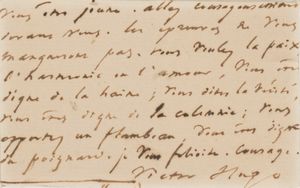 vous êtes jeune. allez courageusement
devant vous. les épreuves ne vous
manqueront pas. vous voulez la paix
l'harmonie et l'amour, vous êtes
digne de la haine; vous dites la vérité
vous êtes digne de la calomnie; vous
apportez un flambeau vous êtes digne
du poignard. je vous félicite. courage.
Victor Hugo